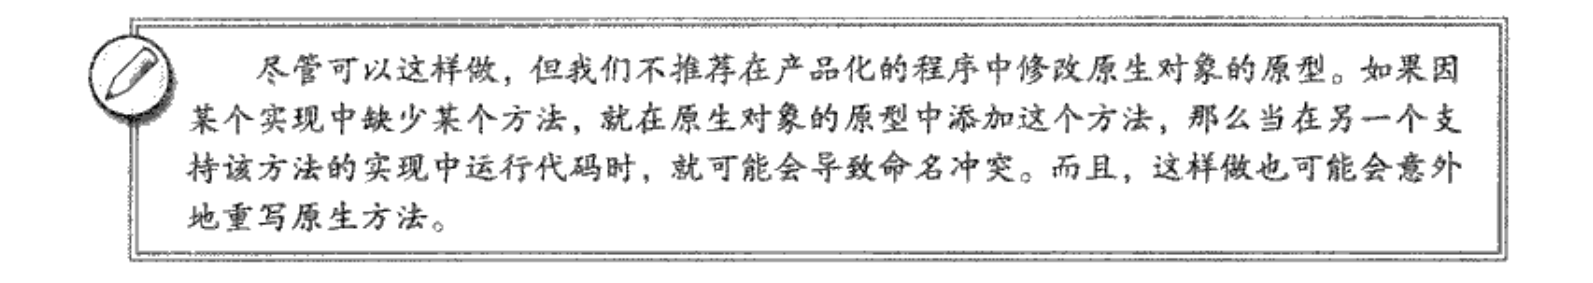 尽管可以这样做，但我们不推荐在产品化的程序中修改原生对象的原型。如果因
某个实现中缺少某个方法，就在原生对象的原型中添加这个方法，那么当在另一个支
持该方法的实现中运行代码时，就可能会导致命名冲突。而且，这样做也可能会意外
地重写原生方法。